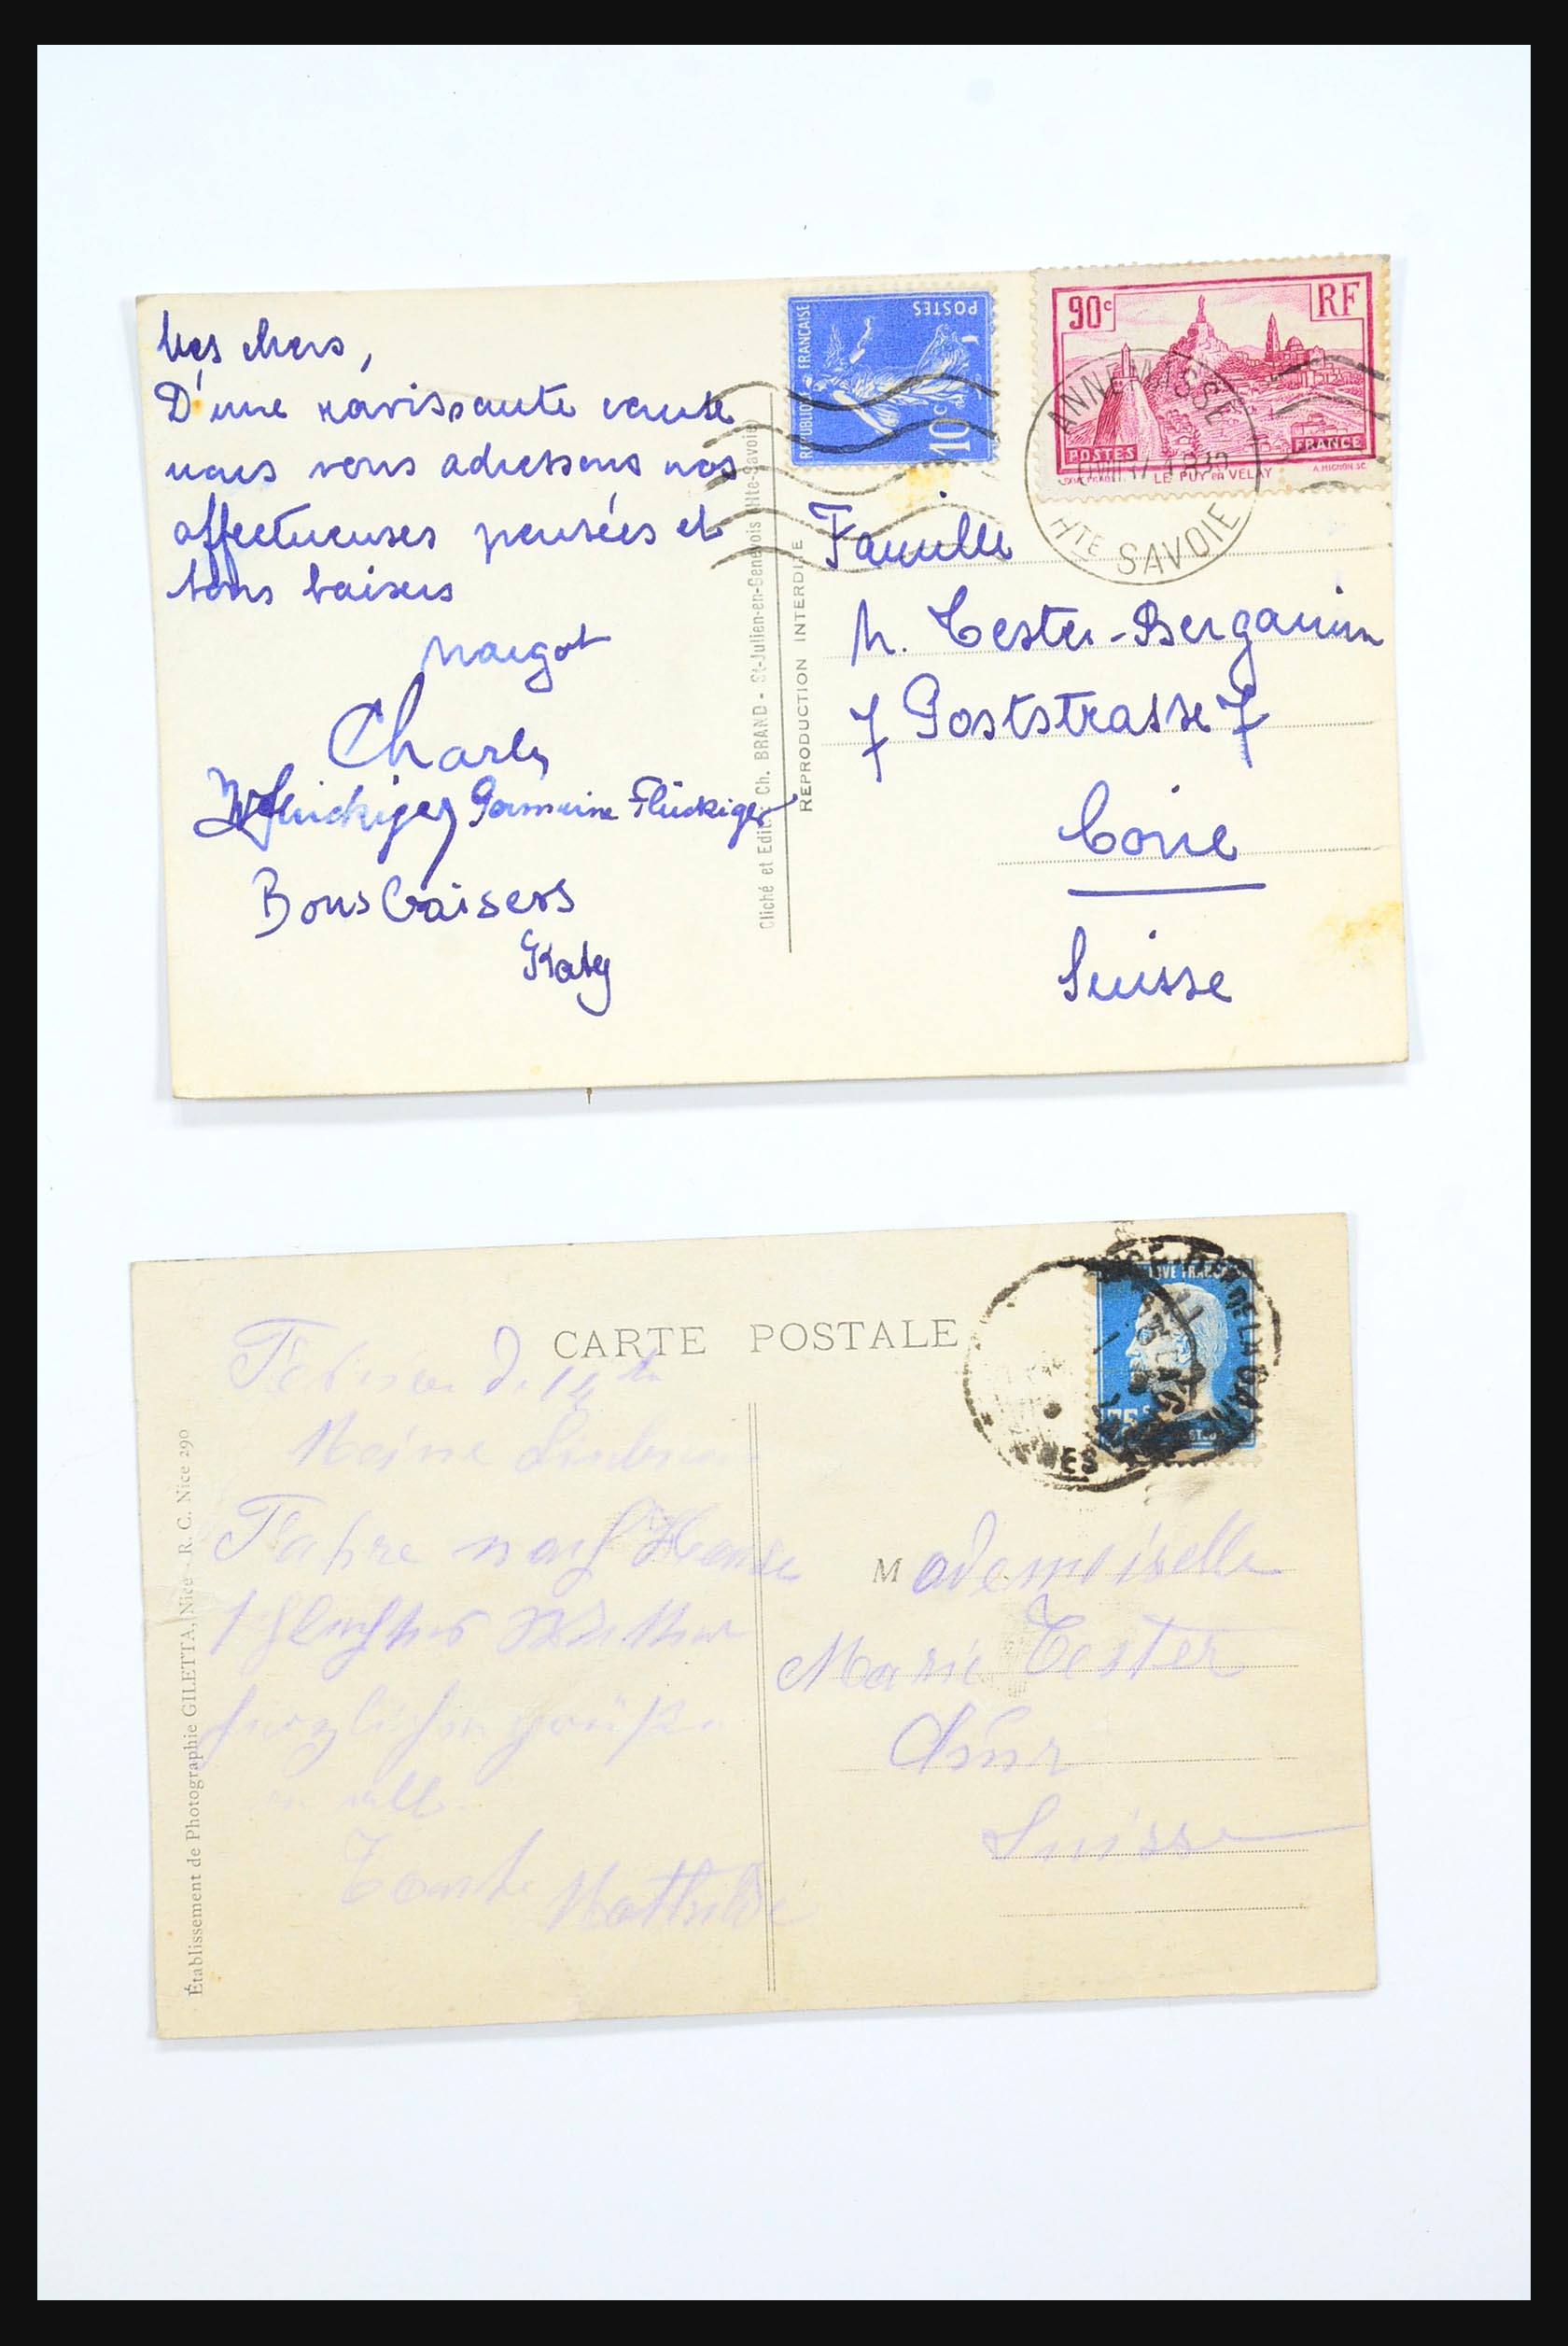 Mes chers,
D'une ravissante
nous vous adressons nos
affectueuses pensées et
bons baisers
Margot
Charly
Flückiger Germaine Flückiger
Bons baisers
Katy
Cliché et Edit. Ch. BRAND - St-Julien-en-Genevois (Hte-Savoie)
REPRODUCTION INTERDITE
RÉPUBLIQUE FRANÇAISE
POSTES
10c
90c
RF
POSTES
FRANCE
LE PUY en VELAY
A. MIGNON SC.
ANNEMASSE
HTE SAVOIE
Famille
h. Tester-Bergamin
7 Poststrasse 7
Coire
Suisse
CARTE POSTALE
Établissement de Photographie GILETTA, Nice - R. C. Nice 290
Meine
Fahre nach Hause
schlechtes Wetter
herzlichen Grüße
an alle
Tante Mathilde
75c
Mademoiselle
Marie Tester
Chur
Suisse